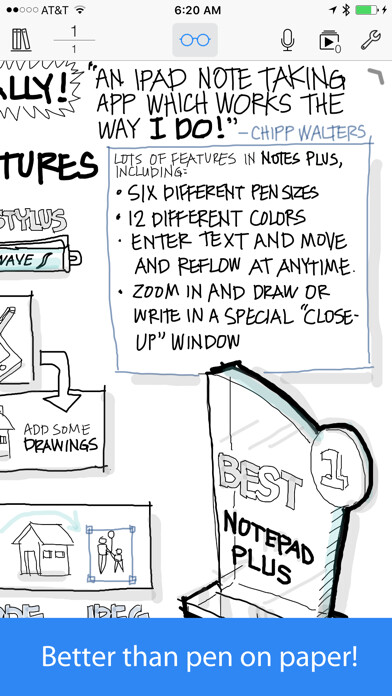 AT&T 6:20 AM
1
1
0
ALLY!
"AN IPAD NOTE TAKING
APP WHICH WORKS THE
WAY I DO!"
– CHIPP WALTERS
TURES
LOTS OF FEATURES IN NOTES PLUS,
INCLUDING:
• SIX DIFFERENT PEN SIZES
• 12 DIFFERENT COLORS
• ENTER TEXT AND MOVE
AND REFLOW AT ANYTIME.
• ZOOM IN AND DRAW OR
WRITE IN A SPECIAL "CLOSE-
UP" WINDOW
STYLUS
WAVE
ADD SOME
DRAWINGS
BEST
1
NOTEPAD
PLUS
JPEG
Better than pen on paper!